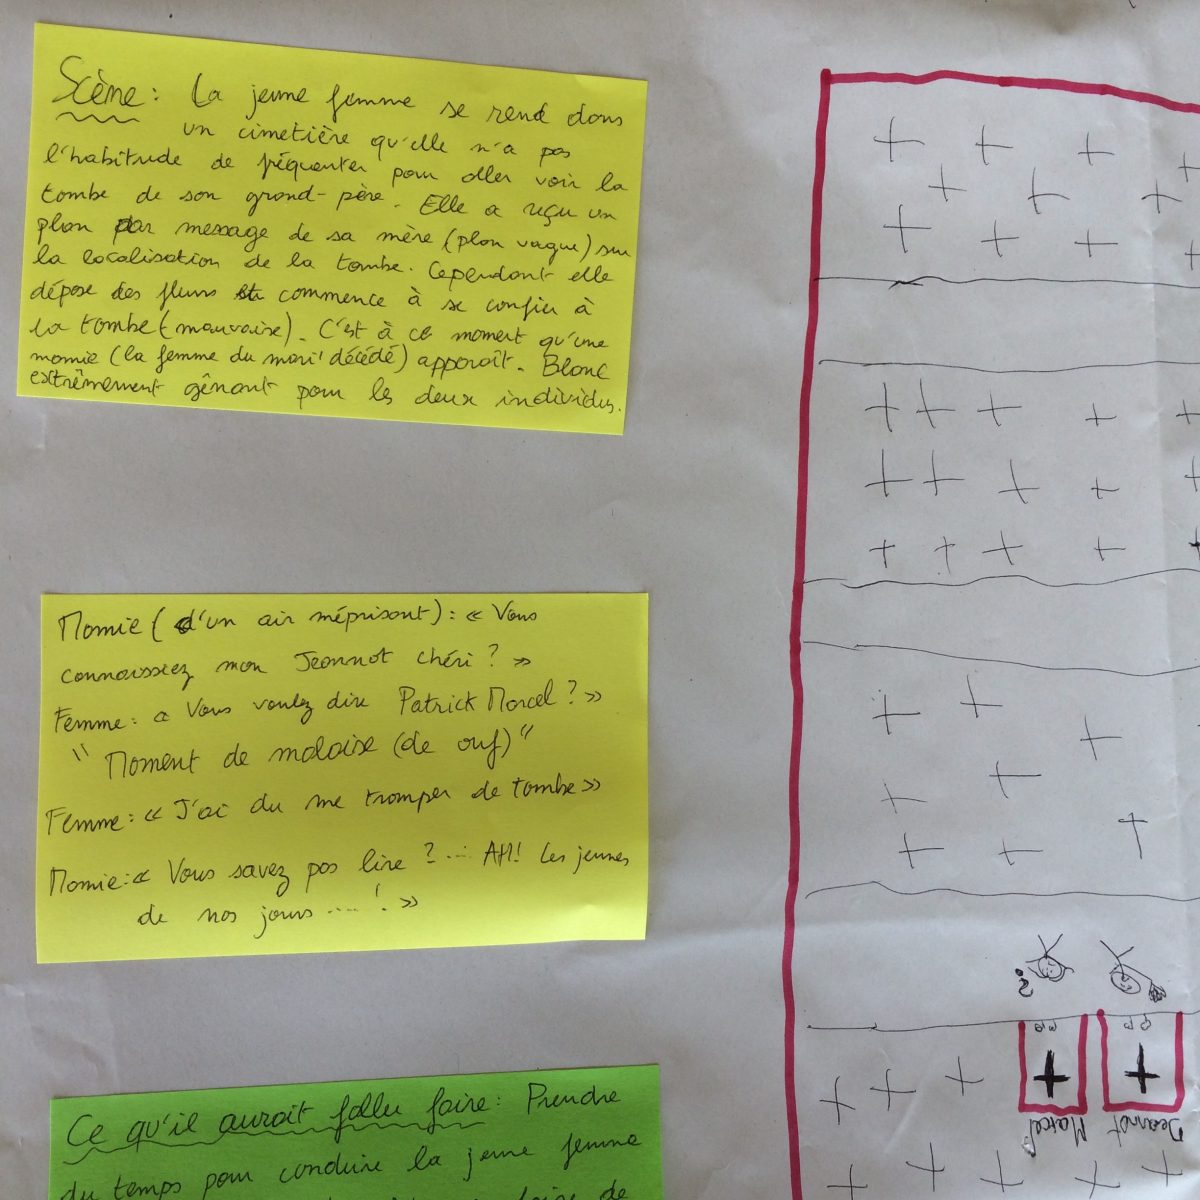 Scène : La jeune femme se rend dans
un cimetière qu'elle n'a pas
l'habitude de fréquenter pour aller voir la
tombe de son grand-père. Elle a reçu un
plan par message de sa mère (plan vague) sur
la localisation de la tombe. Cependant elle
dépose des fleurs et commence à se confier à
la tombe (mauvaise). C'est à ce moment qu'une
mamie (la femme du mari décédé) apparaît. Blanc
extrêmement gênant pour les deux individus.
Mamie (d'un air méprisant) : « Vous
connaissiez mon Jeannot chéri ? »
Femme : « Vous voulez dire Patrick Marcel ? »
" Moment de malaise (de ouf) "
Femme : « J'ai du me tromper de tombe »
Mamie : « Vous savez pas lire ? ... AH! Les jeunes
de nos jours .... ! »
Ce qu'il aurait fallu faire : Prendre
du temps pour conduire la jeune femme
faire de
?
Marcel
Jeannot